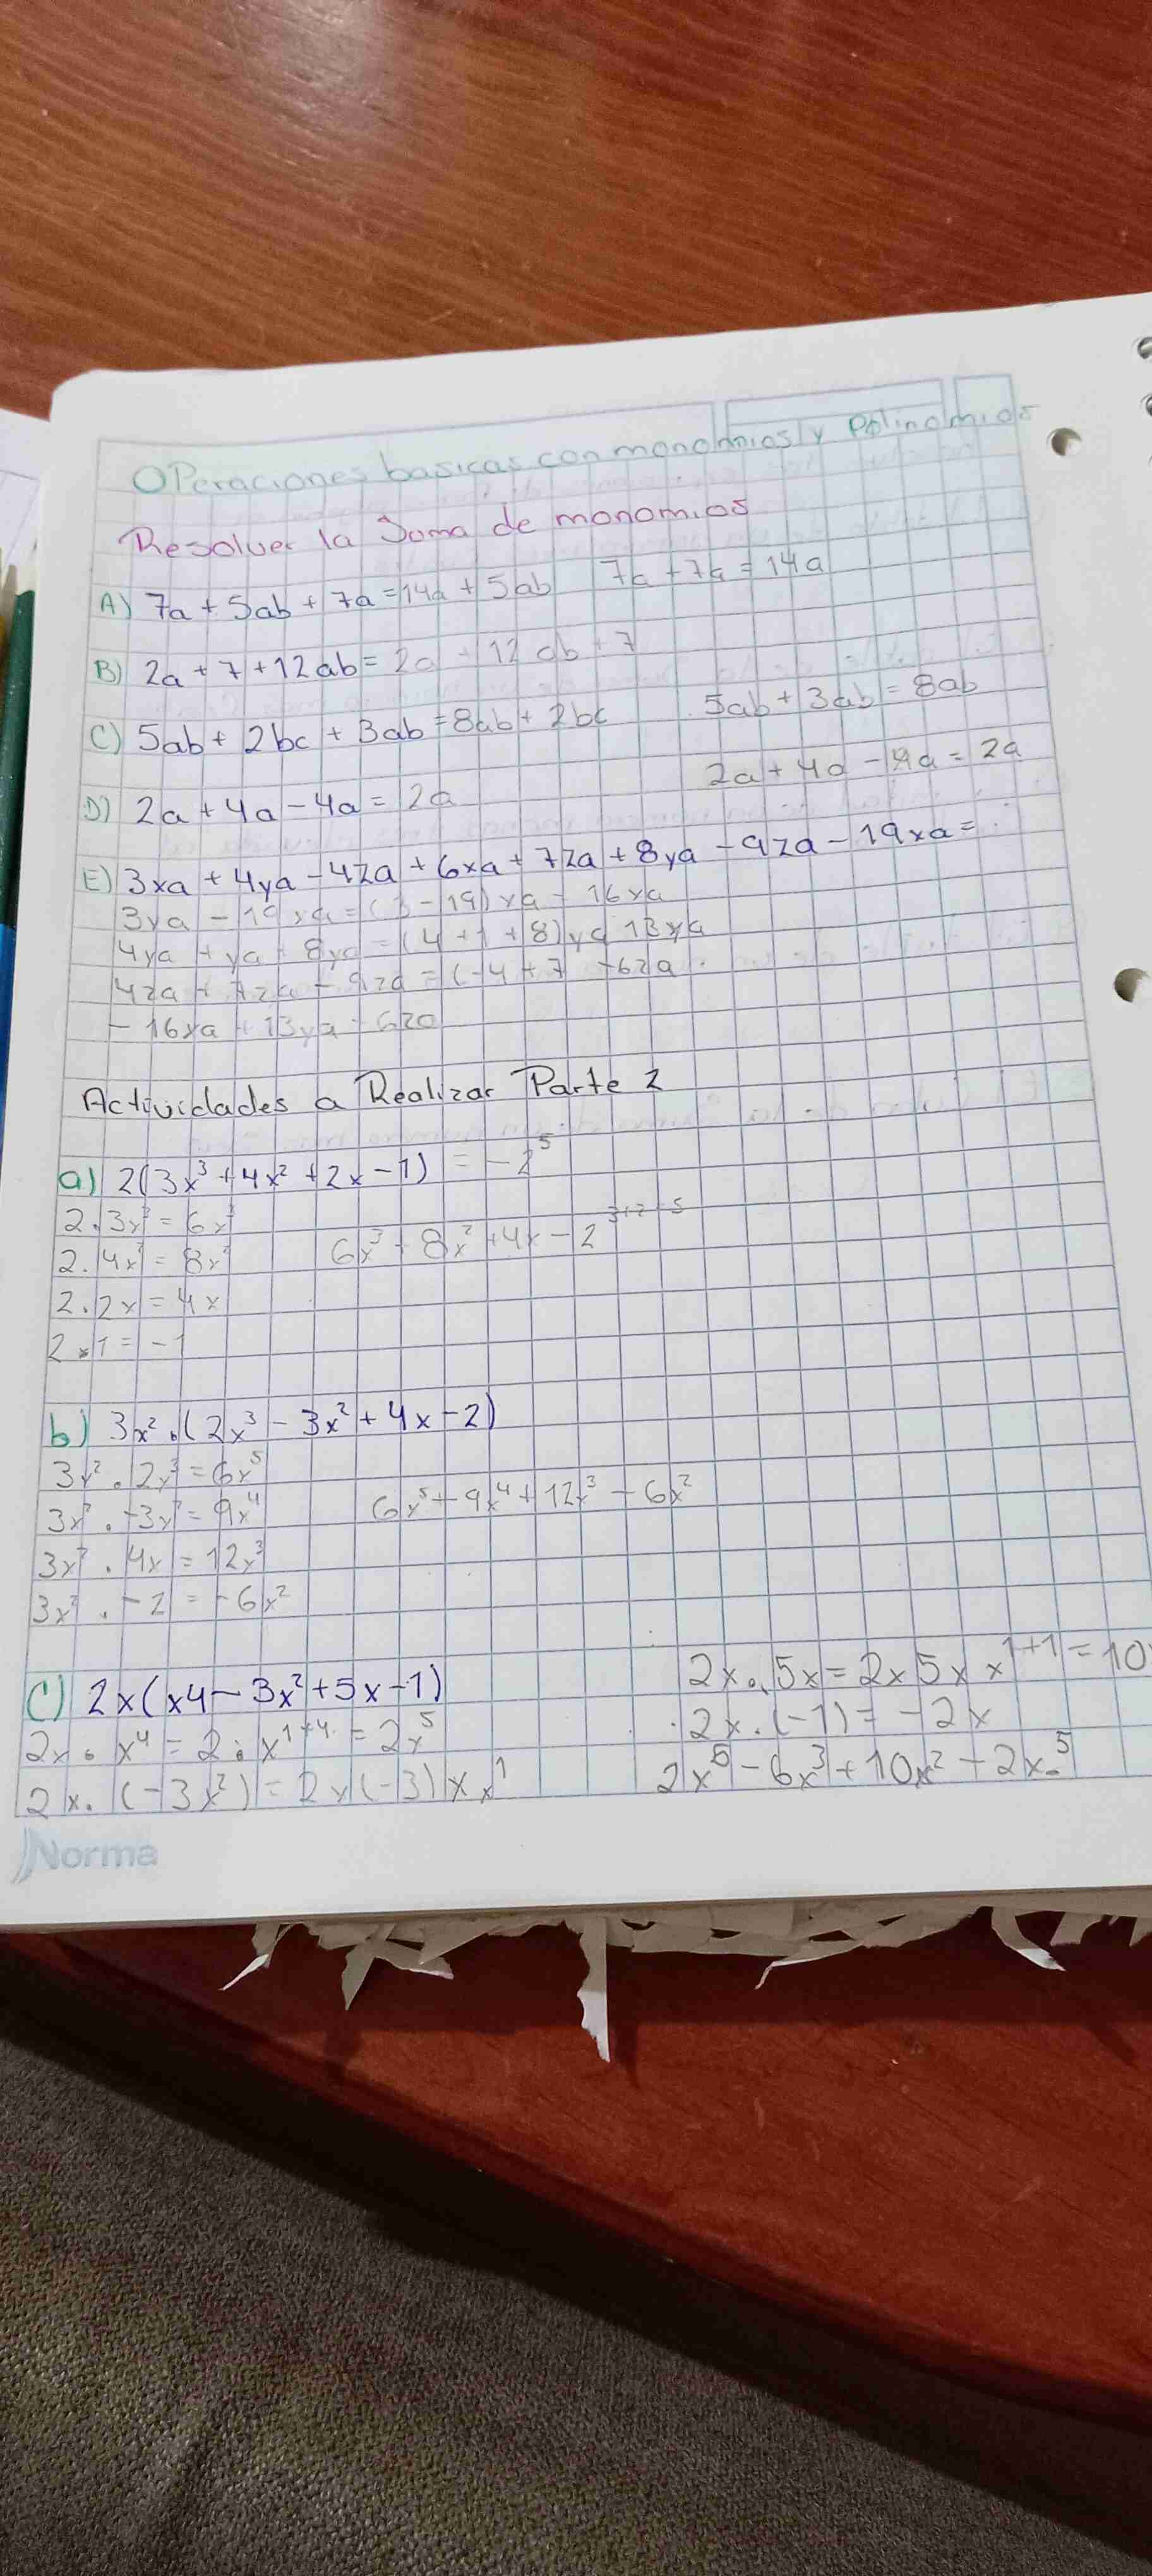 Operaciones basicas con monomios y Polinomios
Resolver la Suma de monomios
A) 7a + 5ab + 7a = 14a + 5ab 7a + 7a = 14a
B) 2a + 7 + 12ab = 2a + 12ab + 7
C) 5ab + 2bc + 3ab = 8ab + 2bc 5ab + 3ab = 8ab
D) 2a + 4a - 4a = 2a 2a + 4a - 4a = 2a
E) 3xa + 4ya - 4za + 6xa + 7za + 8ya - 9za - 19xa =
3xa - 19xa = (3 - 19)xa - 16xa
4ya + ya + 8ya = (4 + 1 + 8)ya 13ya
4za + 7za - 9za = (-4 + 7 -6za
- 16xa + 13ya - 6za
Actividades a Realizar Parte 2
a) 2(3x³ + 4x² + 2x - 1) = -2⁵
2 . 3x³ = 6x³
2 . 4x² = 8x² 6x³ + 8x² + 4x - 2
2 . 2x = 4x
2 x 1 = -1
b) 3x² . (2x³ - 3x² + 4x - 2)
3x² . 2x³ = 6x⁵
3x² . -3x² = 9x⁴ 6x⁵ + 9x⁴ + 12x³ - 6x²
3x² . 4x = 12x³
3x² . -2 = -6x²
C) 2x(x4 - 3x² + 5x - 1) 2x . 5x = 2x5x x¹⁺¹ = 10
2x . x⁴ = 2 . x¹⁺⁴ = 2x⁵ 2x . (-1) = -2x
2x . (-3x²) = 2x(-3)x x¹ 2x⁵ - 6x³ + 10x² - 2x.⁵
Norma